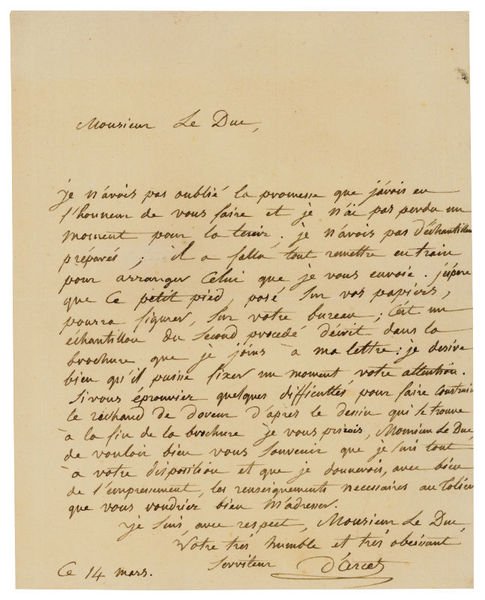 Monsieur Le Duc,
je n'avois pas oublié la promesse que j'avois eu
l'honneur de vous faire et je n'ai pas perdu un
moment pour la tenir. je n'avois pas d'échantillon
préparés ; il a fallu tout remettre en train
pour arranger Celui que je vous envoie. j'espère
que Ce petit pied, posé sur vos papiers,
pourra figurer, sur votre bureau ; C'est un
echantillon du Second procédé décrit dans la
brochure que je joins à ma lettre : je desire
bien qu'il, puisse fixer un moment votre attention.
Si vous eprouviez quelques difficultés pour faire Construire
le rechaud de doreur d'après le dessin qui se trouve
à la fin de la brochure je vous prierois, Monsieur Le Duc,
de vouloir bien vous Souvenir que je suis tout
à votre disposition et que je donnerois, avec bien
de l'empressement, les renseignements necessaires au
que vous voudriez bien m'adresser.
Je suis, avec respect, Monsieur Le Duc,
Votre très humble et très obeissant
Serviteur d'Arcet
Ce 14 mars.